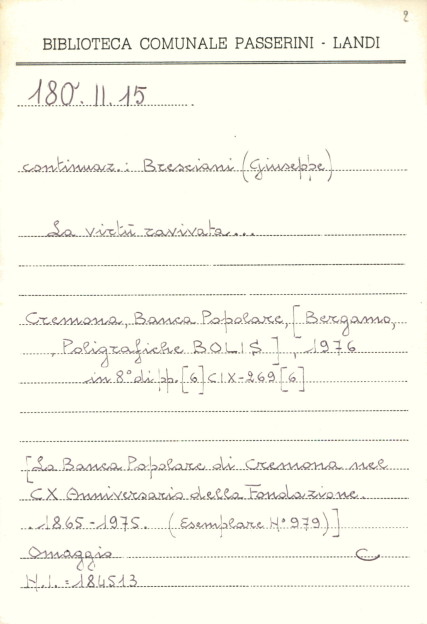 2
BIBLIOTECA COMUNALE PASSERINI - LANDI
180.II.15
continuaz.: Bresciani (Giuseppe)
La virtù ravivata...
Cremona, Banca Popolare, [Bergamo,
Poligrafiche BOLIS], 1976
in 8° di pp. [6] CIX-269 [6]
[La Banca Popolare di Cremona nel
CX Anniversario della Fondazione.
1865-1975. (Esemplare N° 979)]
Omaggio C
N.I.=184513